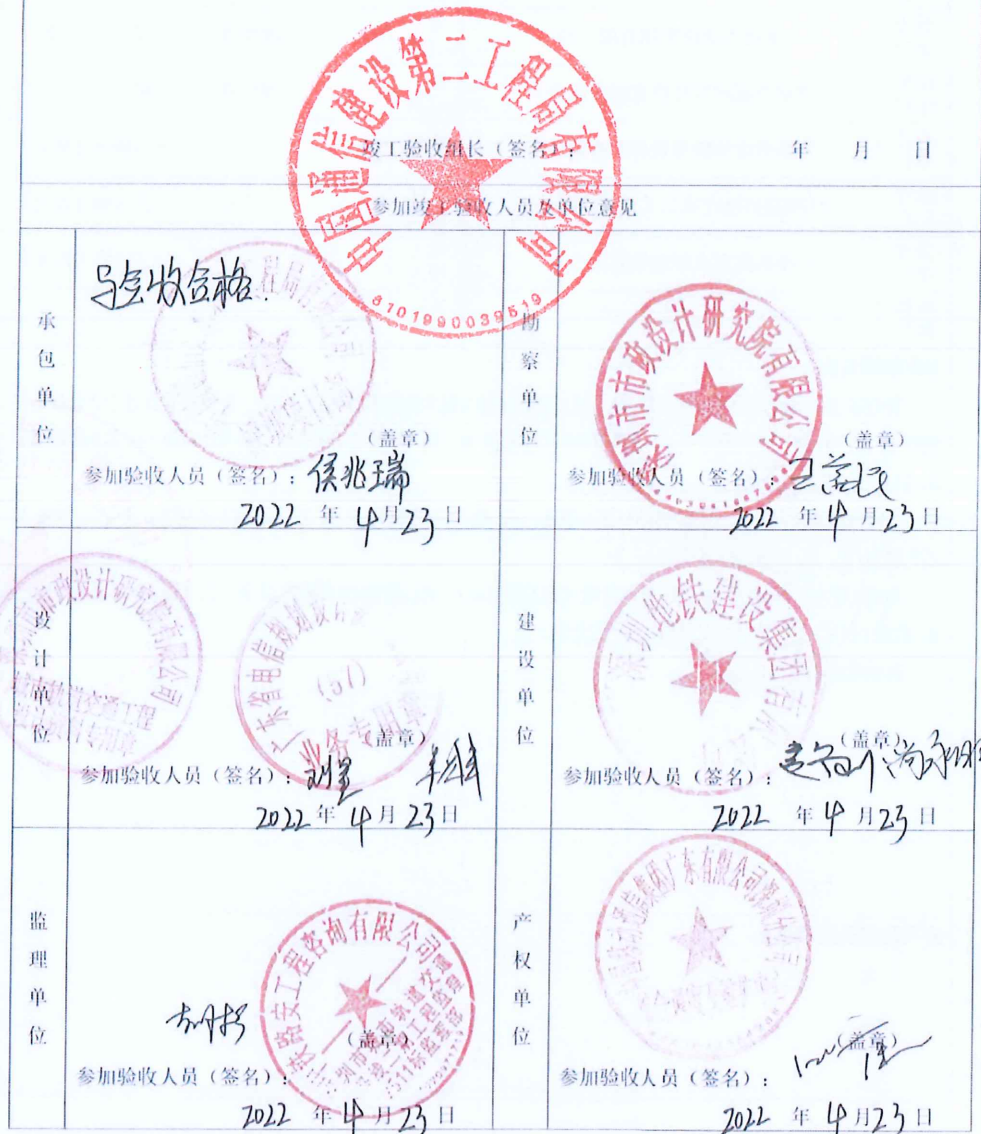 中国通信建设第二工程局有限公司
6101990039519
竣工验收组长（签名）： 年 月 日
参加竣工验收人员及单位意见
承包单位
验收合格.
（盖章）
参加验收人员（签名）：侯兆瑞
2022 年 4月23日
勘察单位
深圳市市政设计研究院有限公司
（盖章）
参加验收人员（签名）：
2022 年 4 月23日
设计单位
市政设计研究院有限公司
城市轨道交通工程
广东省电信规划设计
(57)
业务专用章
（盖章）
参加验收人员（签名）：
2022 年 4月 23日
建设单位
深圳地铁建设集团有限公司
（盖章）
参加验收人员（签名）：
2022 年 4 月23日
监理单位
铁路安工程咨询有限公司
（盖章）
参加验收人员（签名）：
2022 年 4月23日
产权单位
集团广东有限公司深圳分公司
（盖章）
参加验收人员（签名）：
2022 年 4月23日